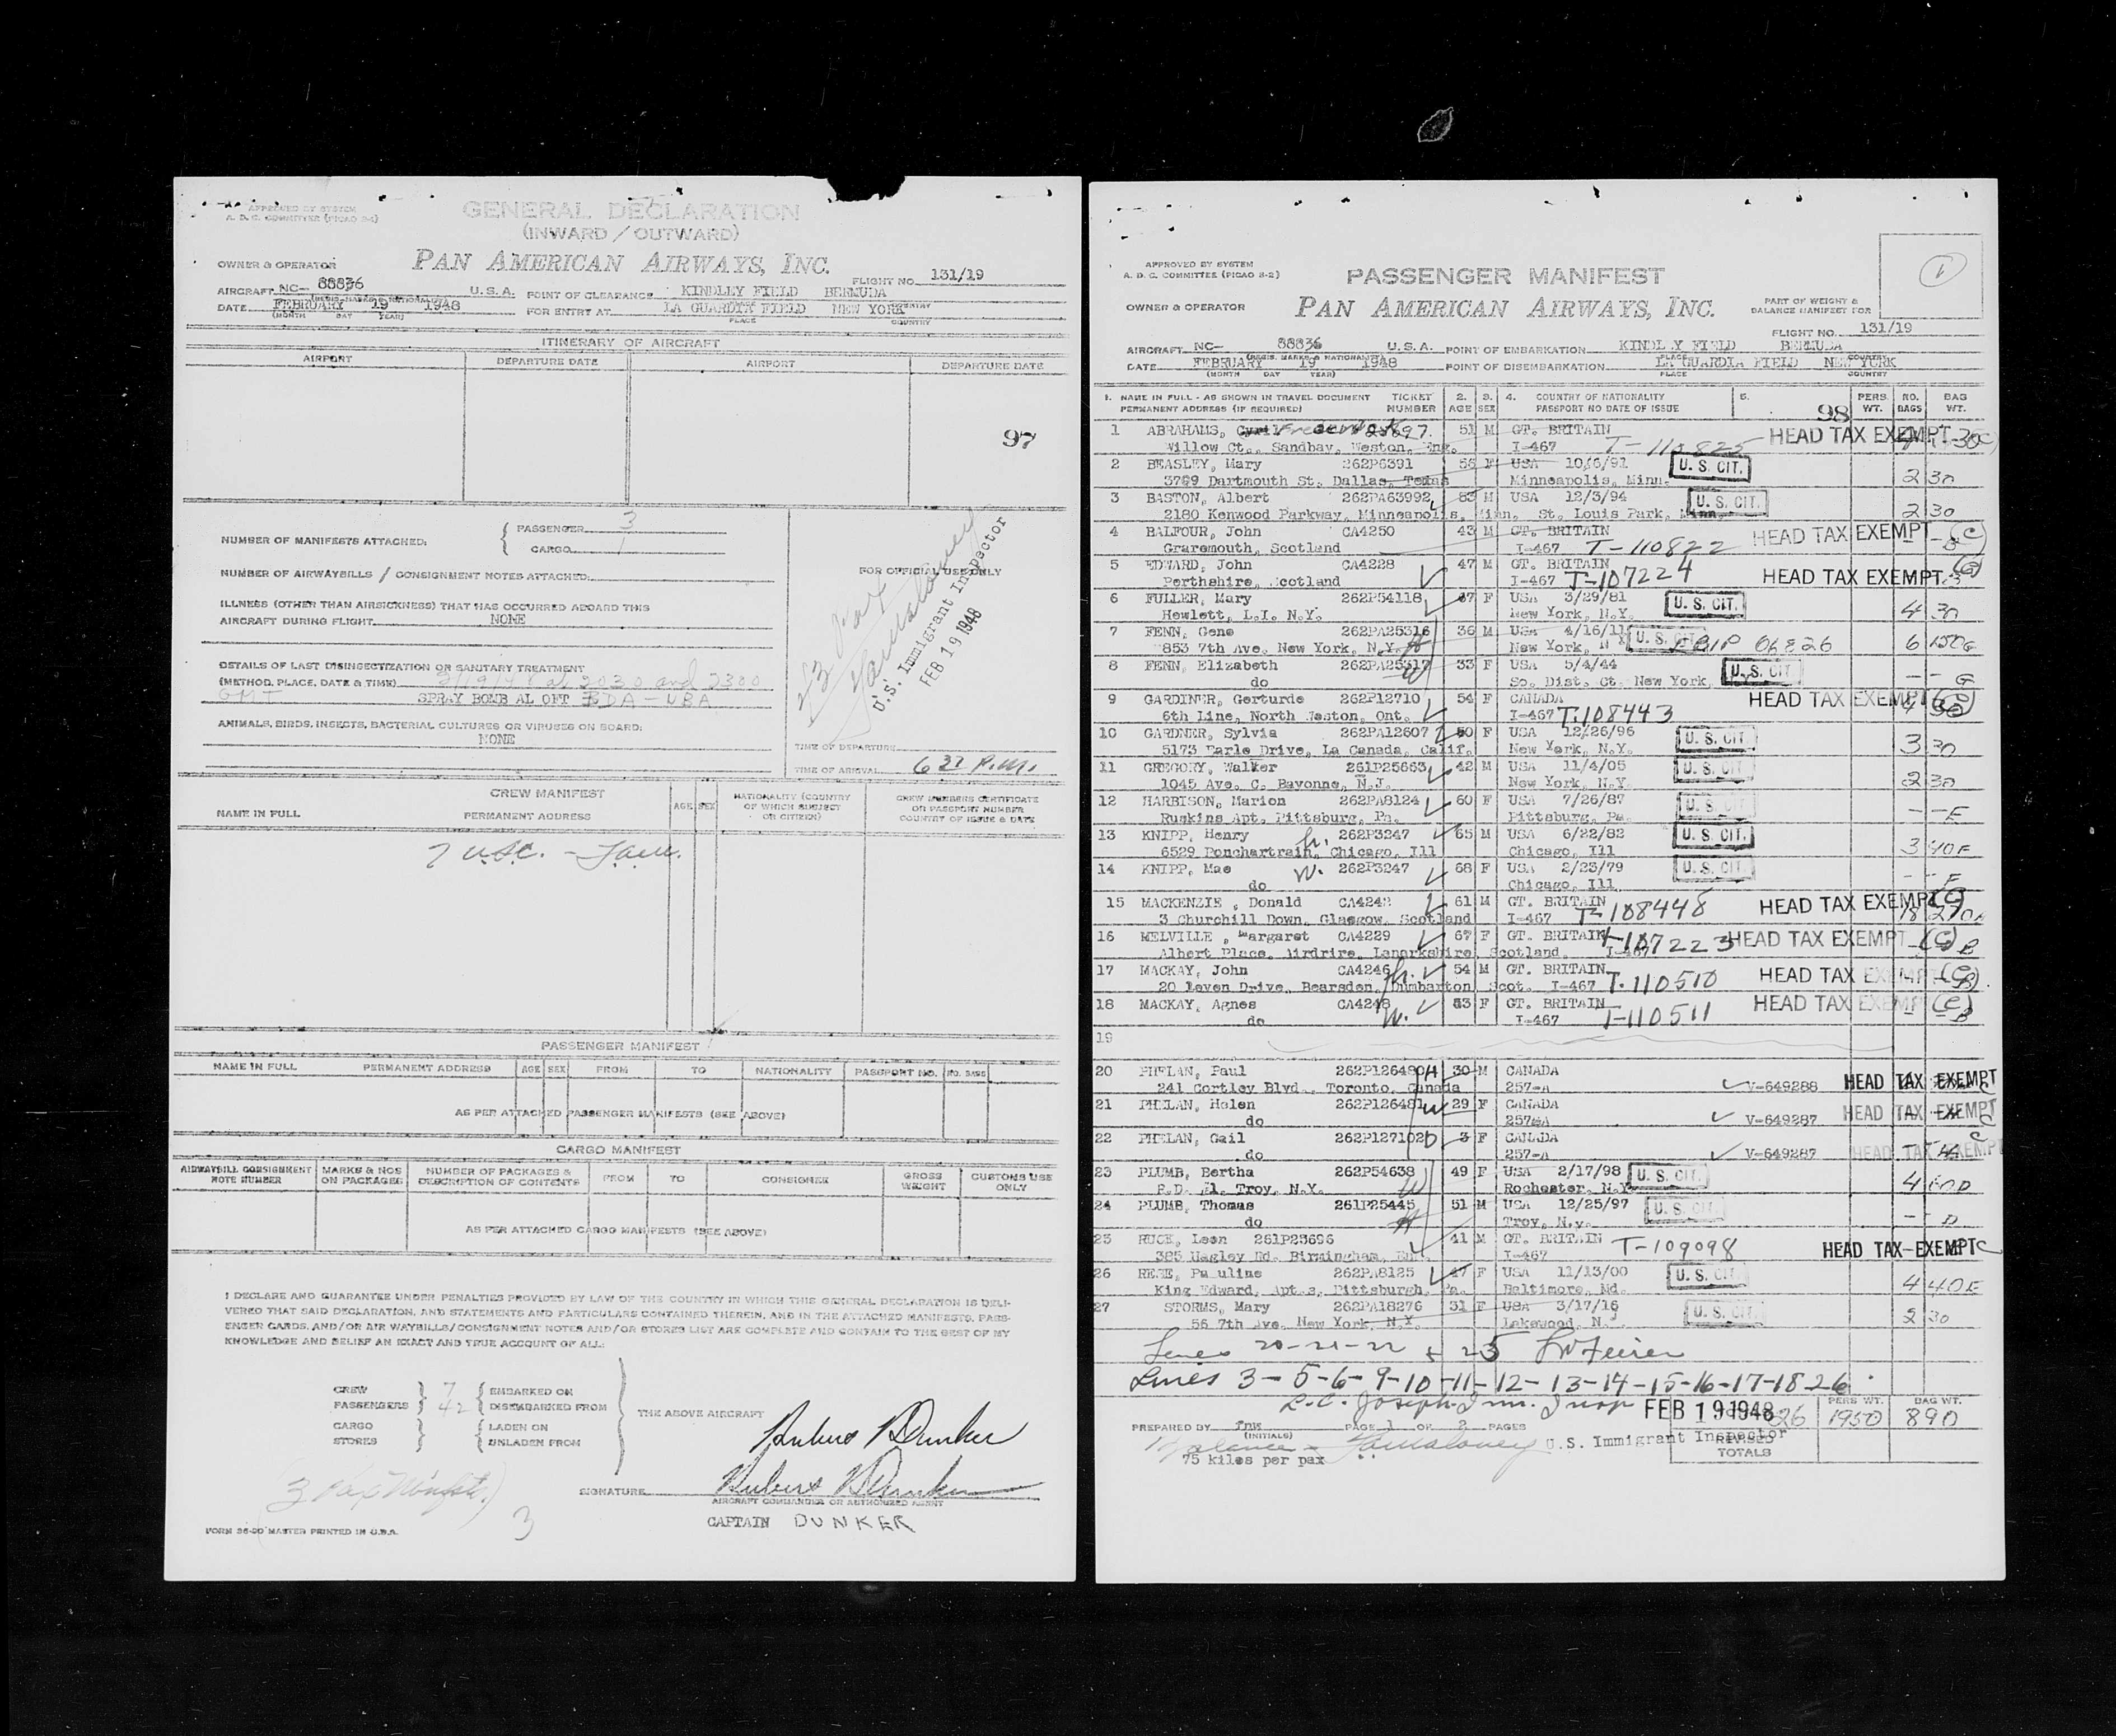 APPROVED BY SYSTEM
A. D. C. COMMITTEE (PICAO 2-1)
GENERAL DECLARATION
(INWARD / OUTWARD)
OWNER & OPERATOR
PAN AMERICAN AIRWAYS, INC.
FLIGHT NO. 131/19
AIRCRAFT NC- 88836 U.S.A. POINT OF CLEARANCE KINDLEY FIELD BERMUDA
DATE FEBRUARY 19 1948 FOR ENTRY AT LA GUARDIA FIELD NEW YORK
(MONTH DAY YEAR) PLACE COUNTRY
ITINERARY OF AIRCRAFT
AIRPORT DEPARTURE DATE AIRPORT DEPARTURE DATE
97
NUMBER OF MANIFESTS ATTACHED: PASSENGER 3
CARGO 1
NUMBER OF AIRWAYBILLS / CONSIGNMENT NOTES ATTACHED:
FOR OFFICIAL USE ONLY
U.S. Immigrant Inspector
FEB 19 1948
ILLNESS (OTHER THAN AIRSICKNESS) THAT HAS OCCURRED ABOARD THIS
AIRCRAFT DURING FLIGHT NONE
DETAILS OF LAST DISINSECTIZATION OR SANITARY TREATMENT
(METHOD, PLACE, DATE & TIME) 2/19/48 at 2030 and 2300
GMT SPRAY BOMB ALOFT BDA - USA
ANIMALS, BIRDS, INSECTS, BACTERIAL CULTURES OR VIRUSES ON BOARD:
NONE
TIME OF DEPARTURE
TIME OF ARRIVAL 6 P.M.
CREW MANIFEST
NAME IN FULL PERMANENT ADDRESS AGE SEX NATIONALITY (COUNTRY OF WHICH SUBJECT OR CITIZEN) CREW MEMBERS CERTIFICATE OR PASSPORT NUMBER COUNTRY OF ISSUE & DATE
7 USC.
PASSENGER MANIFEST
NAME IN FULL PERMANENT ADDRESS AGE SEX FROM TO NATIONALITY PASSPORT NO. NO. BAGS
AS PER ATTACHED PASSENGER MANIFESTS (SEE ABOVE)
CARGO MANIFEST
AIRWAYBILL CONSIGNMENT NOTE NUMBER MARKS & NOS ON PACKAGES NUMBER OF PACKAGES & DESCRIPTION OF CONTENTS FROM TO CONSIGNEE GROSS WEIGHT CUSTOMS USE ONLY
AS PER ATTACHED CARGO MANIFESTS (SEE ABOVE)
I DECLARE AND GUARANTEE UNDER PENALTIES PROVIDED BY LAW OF THE COUNTRY IN WHICH THIS GENERAL DECLARATION IS DELI-
VERED THAT SAID DECLARATION, AND STATEMENTS AND PARTICULARS CONTAINED THEREIN, AND IN THE ATTACHED MANIFESTS, PASS-
ENGER CARDS, AND/OR AIR WAYBILLS/CONSIGNMENT NOTES AND/OR STORES LIST ARE COMPLETE AND CONTAIN TO THE BEST OF MY
KNOWLEDGE AND BELIEF AN EXACT AND TRUE ACCOUNT OF ALL:
CREW 7 EMBARKED ON
PASSENGERS 42 DISEMBARKED FROM
THE ABOVE AIRCRAFT
CARGO LADEN ON
STORES UNLADEN FROM
SIGNATURE
AIRCRAFT COMMANDER OR AUTHORIZED AGENT
CAPTAIN DUNKER
3
FORM 36-20 MASTER PRINTED IN U.S.A.
APPROVED BY SYSTEM
A. D. C. COMMITTEE (PICAO 2-2)
PASSENGER MANIFEST
1
OWNER & OPERATOR PAN AMERICAN AIRWAYS, INC.
PART OF WEIGHT & BALANCE MANIFEST FOR
FLIGHT NO. 131/19
AIRCRAFT NC- 88836 U.S.A. POINT OF EMBARKATION KINDLEY FIELD BERMUDA
DATE FEBRUARY 19 1948 POINT OF DISEMBARKATION LA GUARDIA FIELD NEW YORK
(MONTH DAY YEAR) PLACE COUNTRY
1. NAME IN FULL - AS SHOWN IN TRAVEL DOCUMENT TICKET 2. 3. 4. COUNTRY OF NATIONALITY 5. PERS. NO. BAG
PERMANENT ADDRESS (IF REQUIRED) NUMBER AGE SEX PASSPORT NO DATE OF ISSUE 98 WT. BAGS WT.
1 ABRAHAMS, Cyril Frederick 51 M GT. BRITAIN HEAD TAX EXEMPT
Willow Ct., Sandbay, Weston, Eng. I-467 T-110825
2 BEASLEY, Mary 262P6391 56 F USA 10/6/91 U. S. CIT.
3709 Dartmouth St. Dallas, Texas Minneapolis, Minn. 2 30
3 BASTON, Albert 262PA63992 53 M USA 12/3/94 U. S. CIT.
2180 Kenwood Parkway, Minneapolis, Minn. St. Louis Park, Minn. 2 30
4 BALFOUR, John CA4250 43 M GT. BRITAIN HEAD TAX EXEMPT (C)
Graremouth, Scotland I-467 T-110822
5 EDWARD, John CA4228 47 M GT. BRITAIN
Perthshire, Scotland I-467 T-107224 HEAD TAX EXEMPT
6 FULLER, Mary 262P54118 67 F USA 3/29/81 U. S. CIT.
Hewlett, L.I. N.Y. New York, N.Y. 4 30
7 FENN, Gene 262PA25316 36 M USA 4/16/11 U. S. CIT.
853 7th Ave. New York, N.Y. New York, N 6
8 FENN, Elizabeth 262PA25317 33 F USA 5/4/44 U. S. CIT.
do So. Dist. Ct. New York, - - G
9 GARDINER, Gerturde 262P12710 54 F CANADA HEAD TAX EXEMPT
6th Line, North Weston, Ont. I-467 T-108443
10 GARDNER, Sylvia 262PA12607 50 F USA 12/26/96 U. S. CIT.
5173 Earle Drive, La Canada, Calif. New York, N.Y. 3 30
11 GREGORY, Walker 261P25663 42 M USA 11/4/05 U. S. CIT.
1045 Ave. C. Bayonne, N.J. New York, N.Y. 2 30
12 HARBISON, Marion 262PA8124 60 F USA 7/26/87 U. S. CIT.
Ruskins Apt. Pittsburg, Pa. Pittsburg, Pa. - - E
13 KNIPP, Henry 262P3247 65 M USA 6/22/82 U. S. CIT.
6529 Ponchartrain, Chicago, Ill Chicago, Ill 3 40 F
14 KNIPP, Mae W. 262P3247 68 F USA 2/23/79 U. S. CIT.
do Chicago, Ill - - F
15 MACKENZIE, Donald CA4242 61 M GT. BRITAIN HEAD TAX EXEMPT (C)
3 Churchill Down, Glasgow, Scotland I-467 T-108448
16 MELVILLE, Margaret CA4229 67 F GT. BRITAIN T-107223 HEAD TAX EXEMPT (C)
Albert Place, Airdrire, Lanarkshire, Scotland. I-467 B
17 MACKAY, John CA4246 54 M GT. BRITAIN HEAD TAX EXEMPT (C)
20 Leven Drive, Bearsden, Dumbarton, Scot. I-467 T-110510
18 MACKAY, Agnes CA4248 W. 53 F GT. BRITAIN HEAD TAX EXEMPT (C)
do I-467 T-110511 B
19
20 PHELAN, Paul 262P126480 H 30 M CANADA HEAD TAX EXEMPT
241 Cortley Blvd., Toronto, Canada 257-A V-649288 C
21 PHELAN, Helen 262P126481 W 29 F CANADA HEAD TAX EXEMPT
do 257-A V-649287 C
22 PHELAN, Gail 262P127102 D 3 F CANADA
do 257-A V-649287 HEAD TAX EXEMPT C
23 PLUMB, Bertha 262P54638 49 F USA 2/17/98 U. S. CIT.
R.D. #1, Troy, N.Y. W Rochester, N.Y. 4 60 D
24 PLUMB, Thomas 261P25445 51 M USA 12/25/97 U. S. CIT.
do H Troy, N.Y. - - D
25 HUCK, Leon 261P23696 41 M GT. BRITAIN T-109098
385 Hagley Rd. Birmingham, Eng. I-467 HEAD TAX EXEMPT C
26 RESE, Pauline 262PA8125 47 F USA 11/13/00 U. S. CIT.
King Edward, Apt.s, Pittsburgh, Pa. Baltimore, Md. 4 40 E
27 STORMS, Mary 262PA18276 31 F USA 3/17/16 U. S. CIT.
56 7th Ave. New York, N.Y. Lakewood, N.J. 2 30
Lines 20-21-22 + 25
Lines 3-5-6-9-10-11-12-13-14-15-16-17-18 26
L.C. Joseph Imm. Insp FEB 19 1948 26 PERS WT. 1950 BAG WT. 890
PREPARED BY PAGE 1 OF 2 PAGES
(INITIALS) U.S. Immigrant Inspector REVISED TOTALS
75 kilos per pax